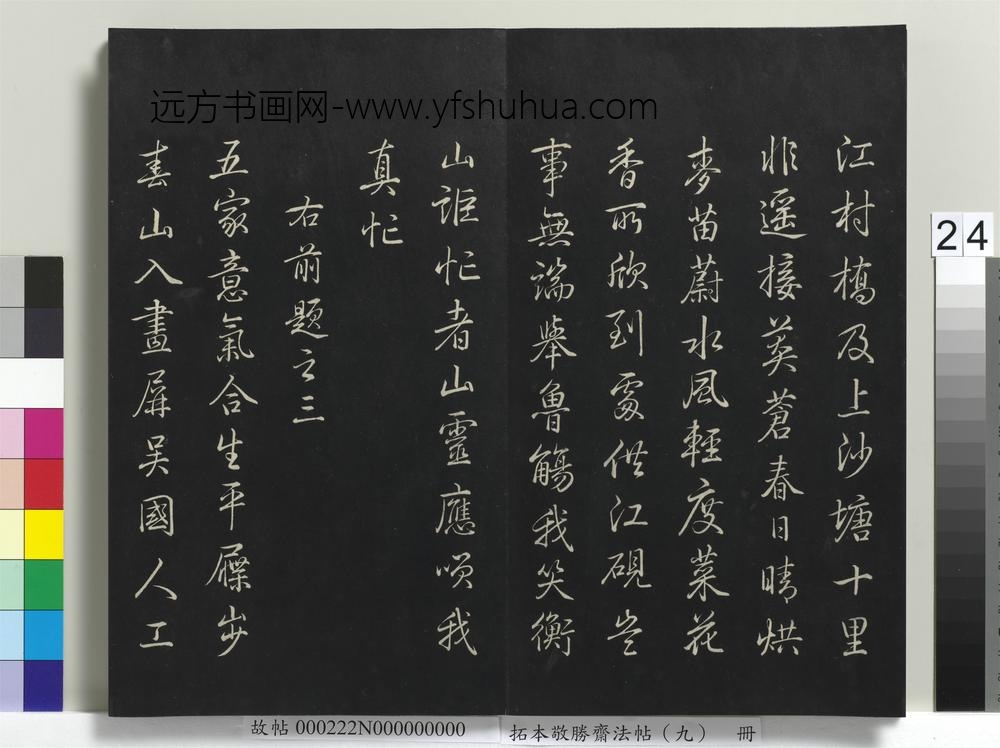 远方书画网-www.yfshuhua.com
江村橋及上沙塘十里
非遥接莫蒼春日晴烘
麥苗蔚水風輕度菜花
香所欣到處供江硯豈
事無端舉魯觴我笑衡
山誰忙者山靈應哂我
真忙
右前題之三
五家意氣合生平屧步
春山入畫屏吴國人工
24
故帖 000222N000000000
拓本敬勝齋法帖（九） 冊